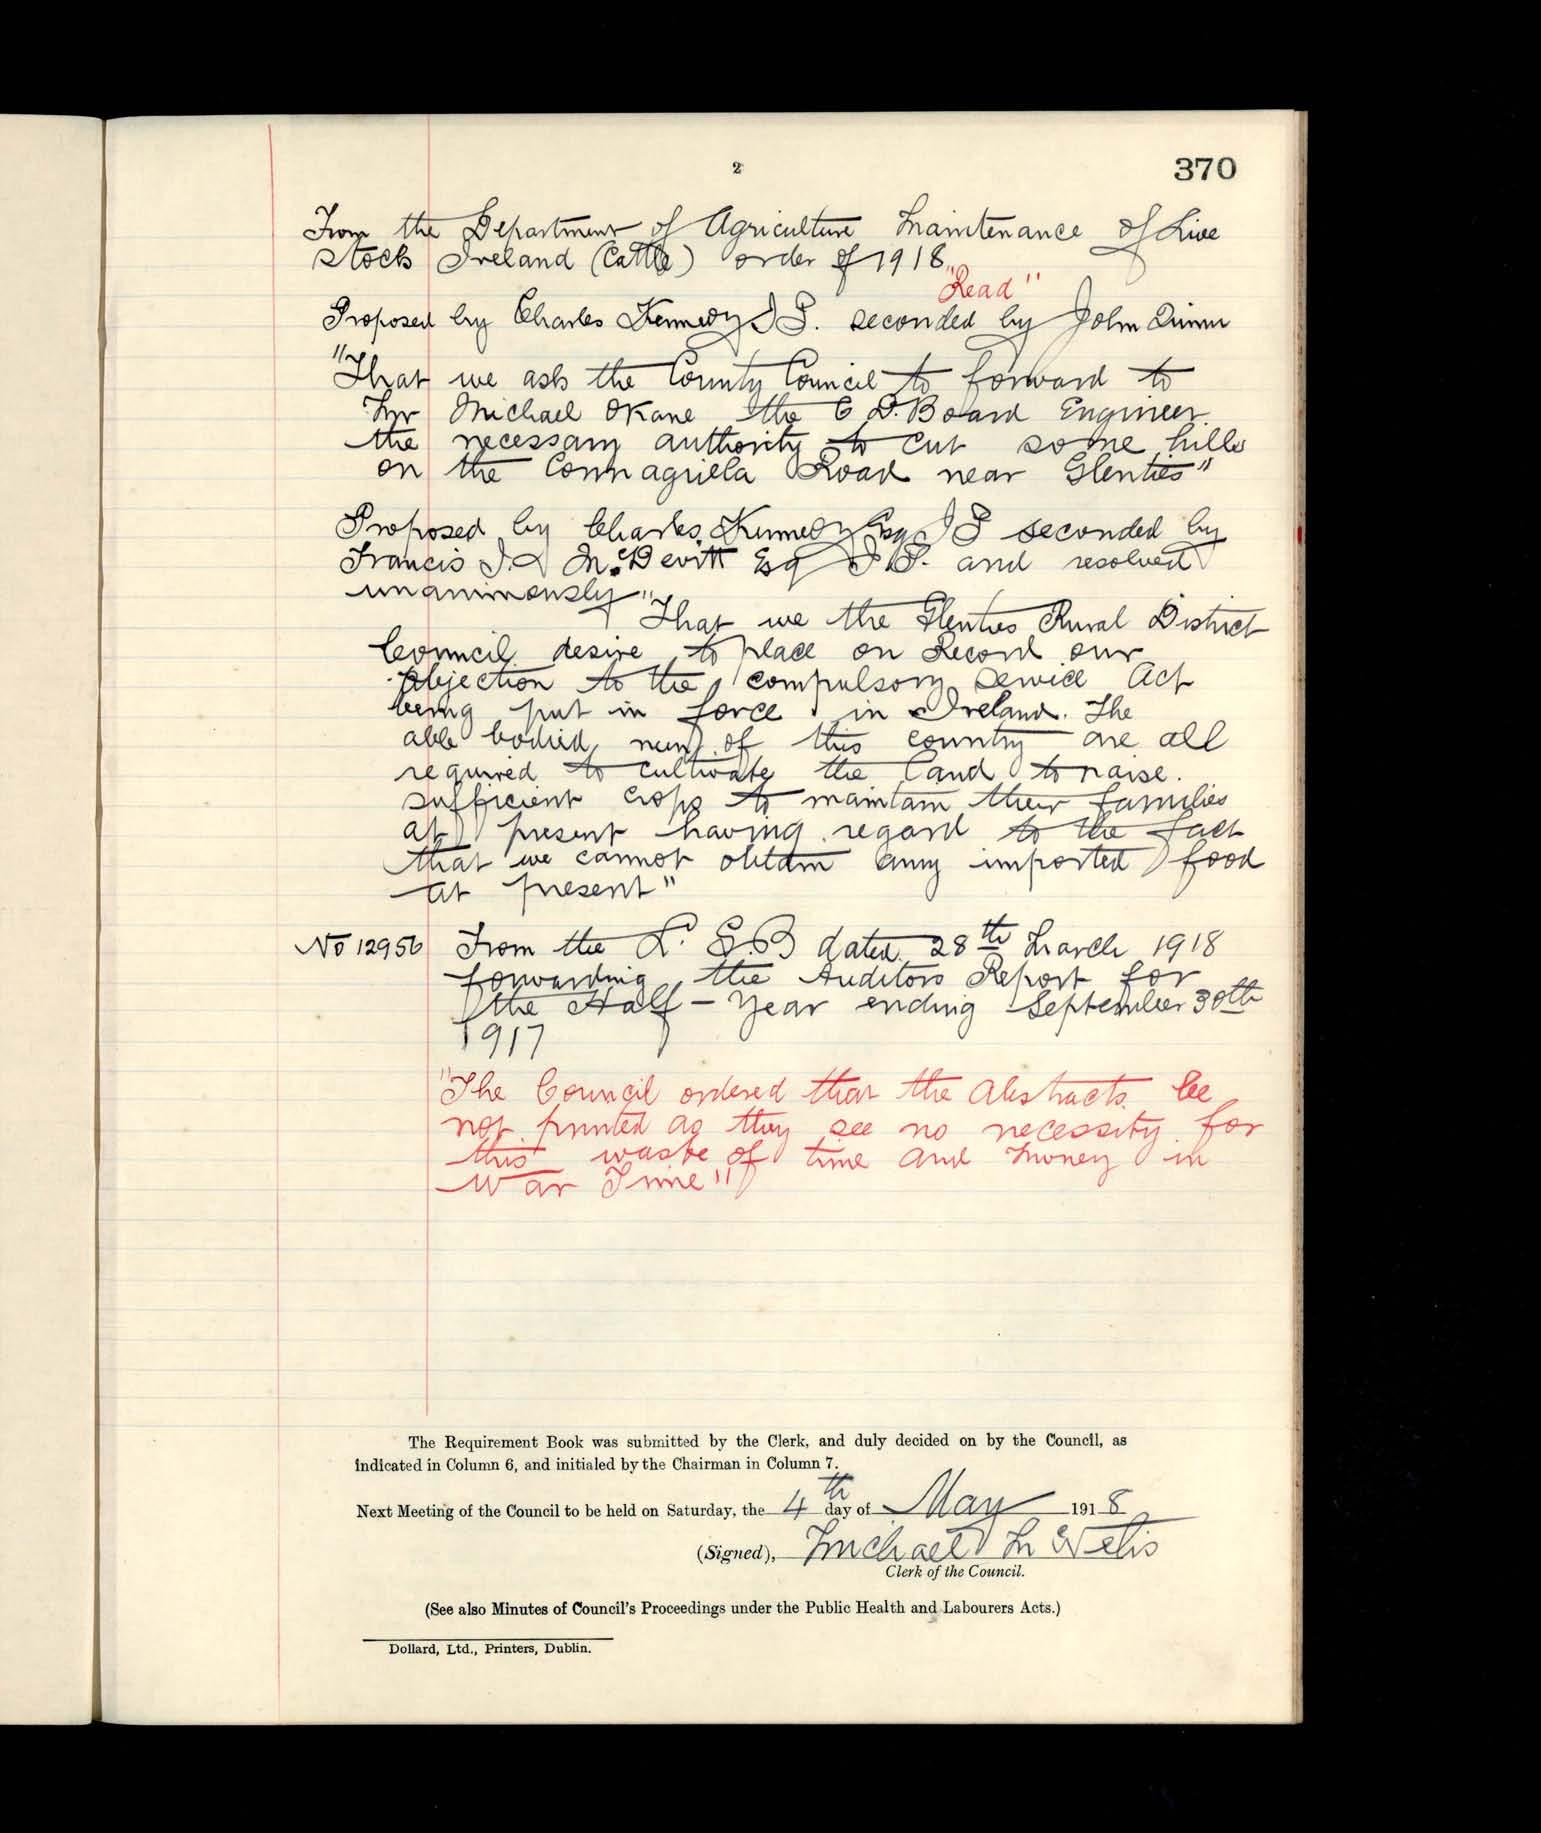 2
370
From the Department of Agriculture Maintenance of Live
Stock Ireland (Cattle) order of 1918
"Read"
Proposed by Charles Kennedy J P. seconded by John Quinn
"That we ask the County Council to forward to
Mr Michael OKane the C. D. Board Engineer
the necessary authority to cut some hills
on the Road near Glenties"
Proposed by Charles Kennedy Esq J P seconded by
Francis J. McDevitt Esq J P. and resolved
unanimously
"That we the Glenties Rural District
Council desire to place on Record our
objection to the compulsory Service Act
being put in force in Ireland. The
able bodied men of this country are all
required to cultivate the land to raise
sufficient crops to maintain their families
at present having regard to the fact
that we cannot obtain any imported food
at present"
No 12956 From the L. G. B dated 28th March 1918
forwarding the Auditors Report for
the Half-Year ending September 30th
1917
"The Council ordered that the Abstracts be
not printed as they see no necessity for
this waste of time and money in
War Time"
The Requirement Book was submitted by the Clerk, and duly decided on by the Council, as
indicated in Column 6, and initialed by the Chairman in Column 7.
Next Meeting of the Council to be held on Saturday, the 4th day of May 1918
(Signed), Michael
Clerk of the Council.
(See also Minutes of Council's Proceedings under the Public Health and Labourers Acts.)
Dollard, Ltd., Printers, Dublin.